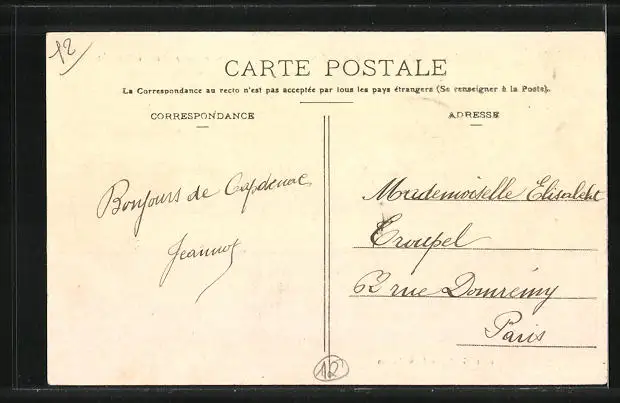 12
CARTE POSTALE
La Correspondance au recto n'est pas acceptée par tous les pays étrangers (Se renseigner à la Poste).
CORRESPONDANCE
ADRESSE
Bonjours de Capdenac
Jeannot
Mademoiselle Elisabeht
Troupel
rue Domrémy
Paris
12